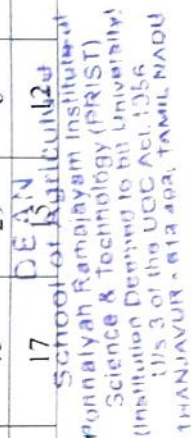 17
15
12
DEAN
School of Agriculture
Ponnaiyah Ramajayam Institute of
Science & Technology (PRIST)
(Institution Deemed to be University)
U/s 3 of the UGC Act. 1956
THANJAVUR - 613 403, TAMIL NADU